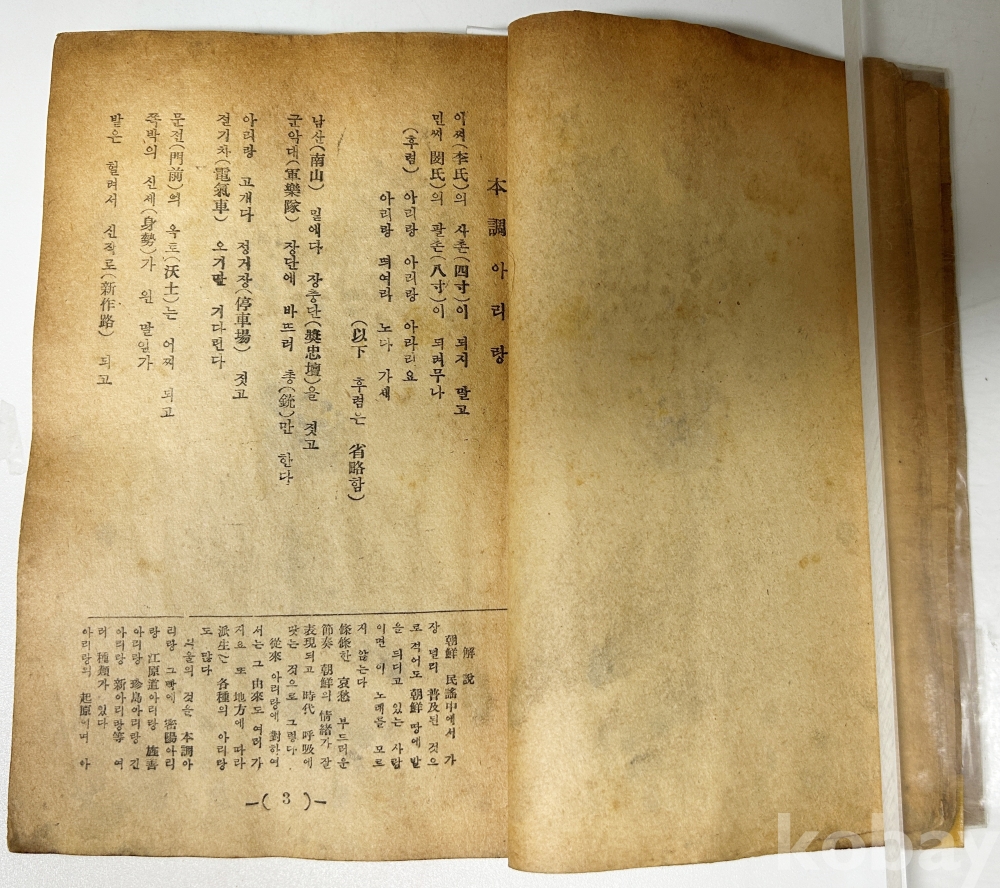 本調아리랑
이씨(李氏)의 사촌(四寸)이 되지 말고
민씨(閔氏)의 팔촌(八寸)이 되려무나
(후렴) 아리랑 아리랑 아라리요
아리랑 띄여라 노다 가세
(以下 후렴은 省略함)
남산(南山) 밑에다 장충단(奬忠壇)을 짓고
군악대(軍樂隊) 장단에 바뜨러 총(銃)만 한다
아리랑 고개다 정거장(停車場) 짓고
전기차(電氣車) 오기만 기다린다
문전(門前)의 옥토(沃土)는 어찌 되고
쪽박의 신세(身勢)가 웬 말인가
밭은 헐려서 신작로(新作路) 되고
解說
朝鮮 民謠中에서 가
장 널리 普及된 것으
로 적어도 朝鮮 땅에 발
을 듸디고 있는 사람
이면 이 노래를 모르
지 않는다
條條한 哀愁 부드러운
節奏 朝鮮의 情緖가 잘
表現되고 時代 呼吸에
맞는 것으로 그렇다
從來 아리랑에 對하여
서는 그 由來도 여러 가
지요 또 地方에 따라
派生된 各種의 아리랑
도 많다
서울의 것을 本調아
리랑 그밖에 密陽아리
랑 江原道아리랑 旌善
아리랑 珍島아리랑 긴
아리랑 新아리랑等 여
러 種類가 있다
아리랑의 起原이며 아
—( 3 )—
kobay